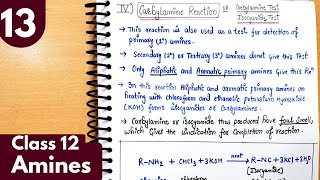 13
Class 12
Amines
IV) Carbylamine Reaction or Carbylamine Test
Isocyanide Test
→ This reaction is also used as a test for detection of
primary (1°) amines.
→ Secondary (2°) or Tertiary (3°) amines donot give this Test
→ Only Aliphatic and Aromatic primary amines give this Rxn
→ In this reaction Aliphatic and Aromatic primary amines on
heating with chloroform and ethanolic potassium Hydroxide
(KOH) forms isocyanides or Carbylamines.
→ Carbylamine or isocyanide thus produced have foul smell,
which gives the indication for completion of reaction.
R-NH₂ + CHCl₃ + 3KOH heat → R-NC + 3KCl + 3H₂O
(Isocyanide)
chloroform